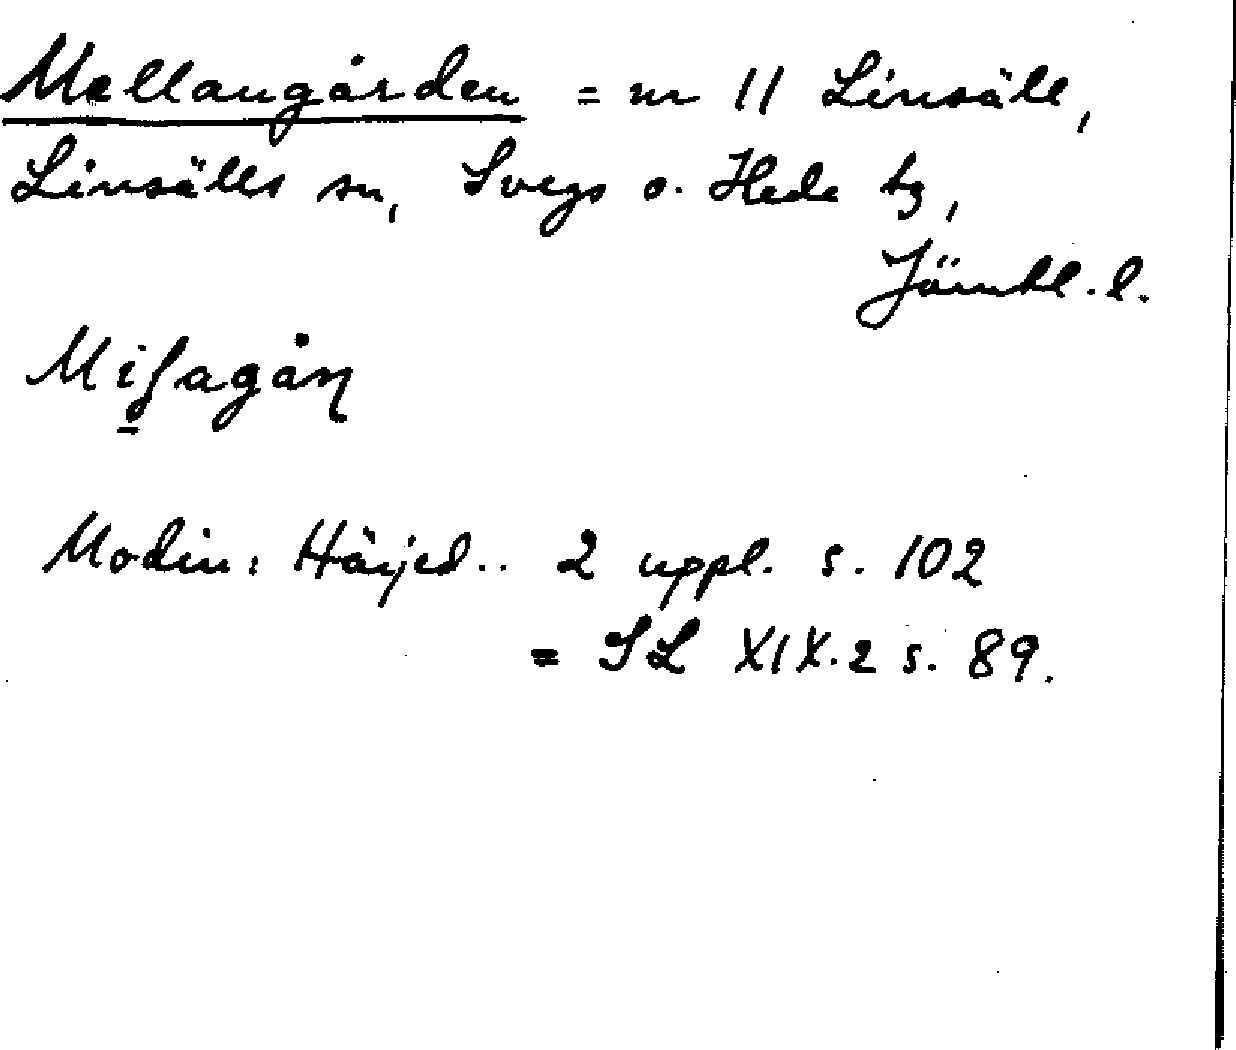 Mellangården = nr 11 Linsäll,
Linsälls sn, Svegs o. Hede tg,
Jämtl. l.
Modin: Härjed.. 2 uppl. s. 102
= SL XIX.2 s. 89.